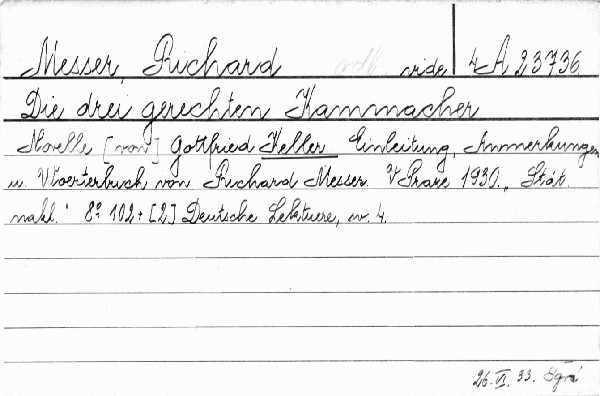 Messer, Richard vide 4 A 23736
Die drei gerechten Kammacher
Novelle [von] Gottfried Keller Einleitung, Anmerkungen
u. Woerterbuch von Richard Messer. V Praze 1930., Stát.
nakl. 8° 102 + [2] Deutsche Lektuere, sv. 4.
26. VI. 33.